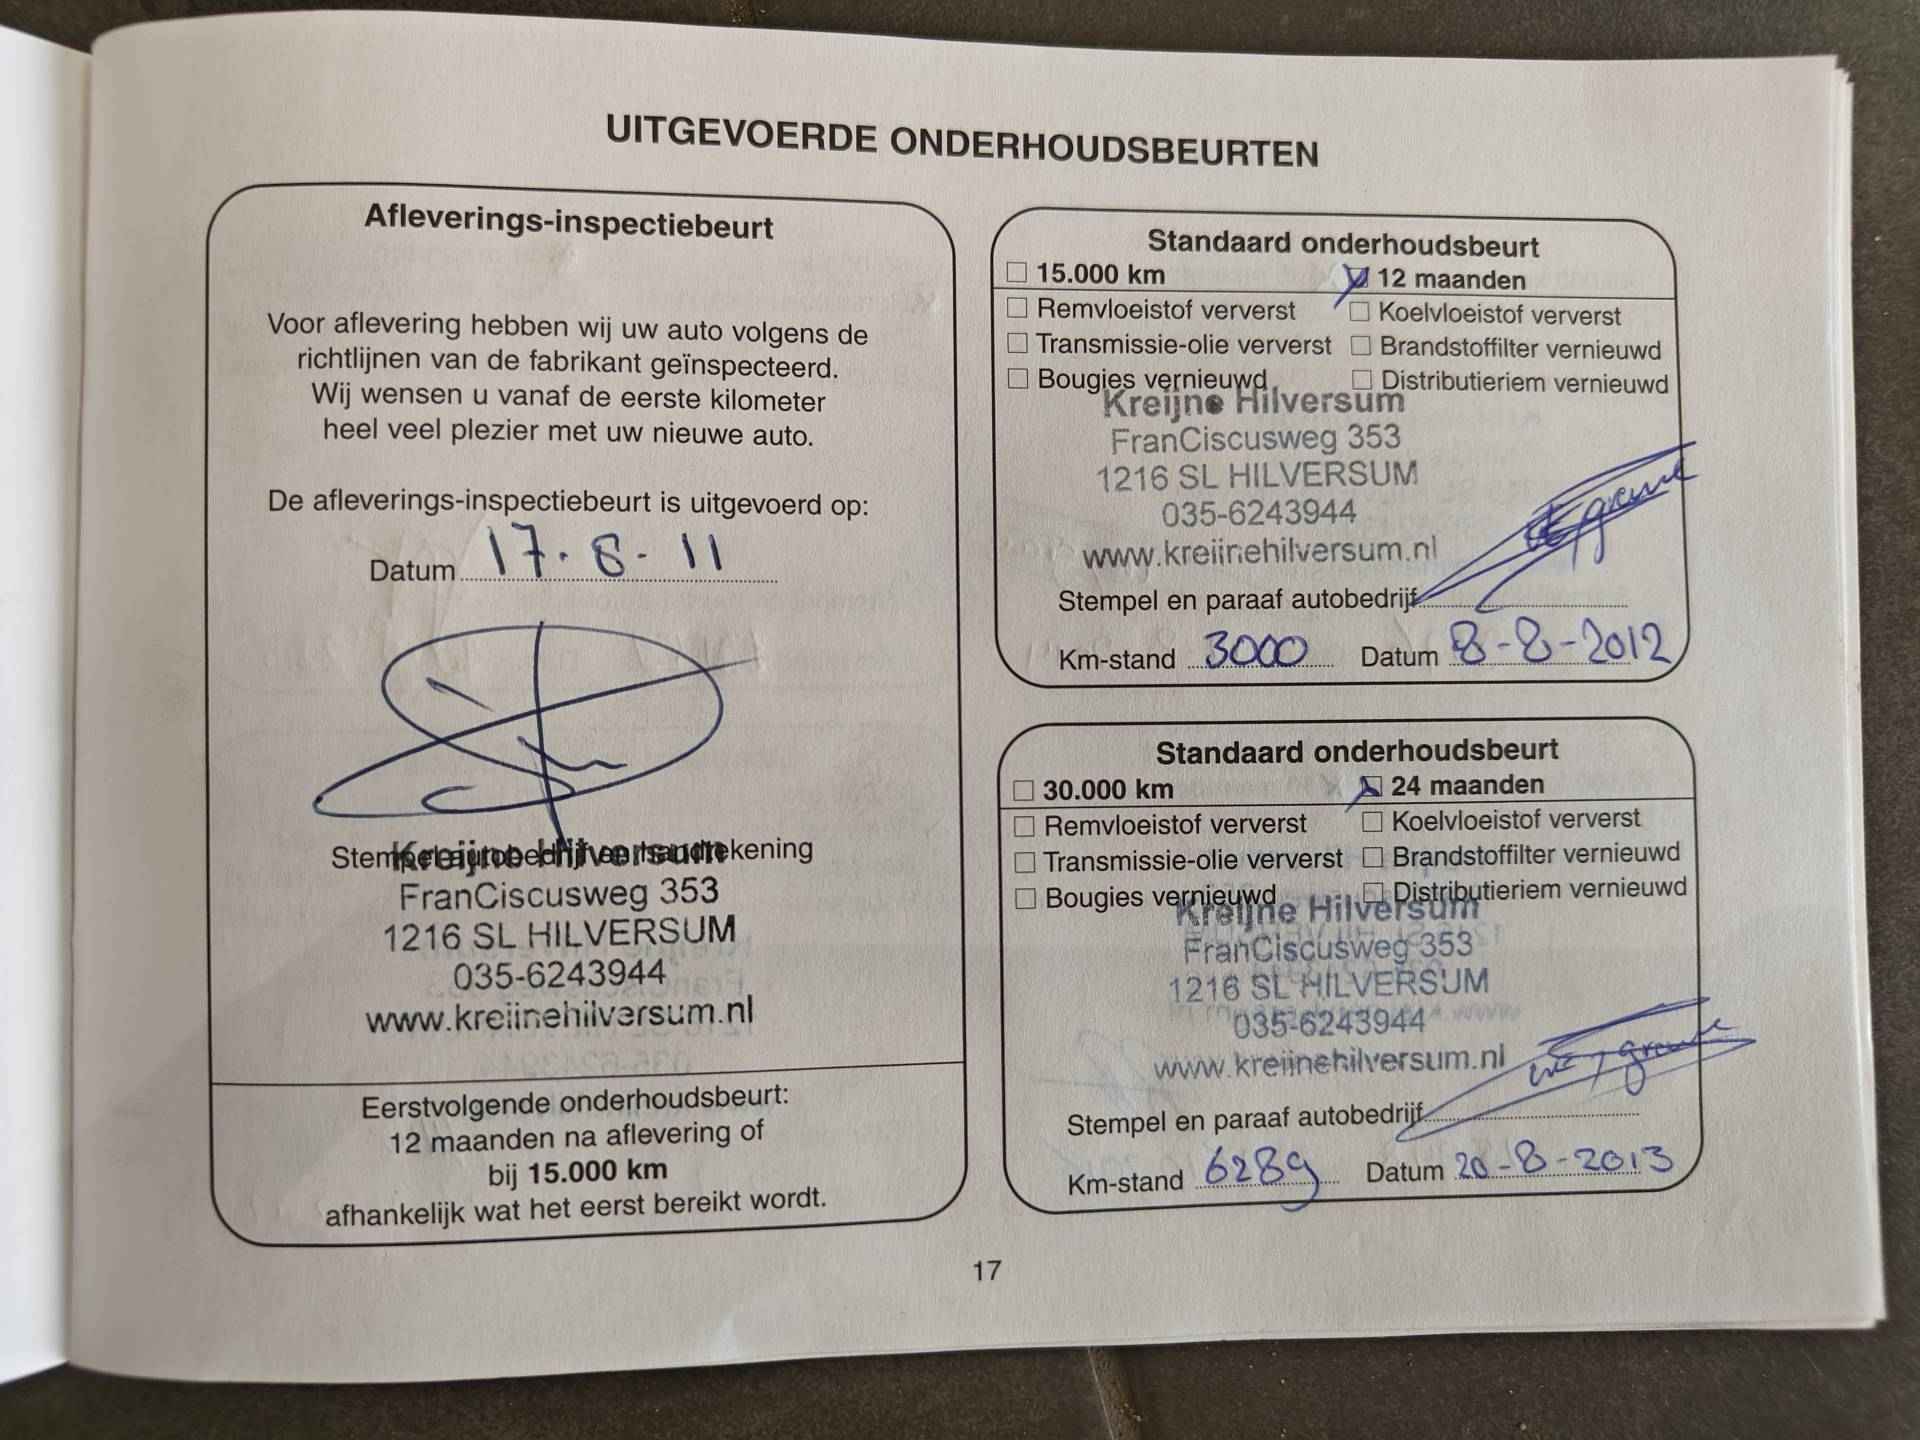 UITGEVOERDE ONDERHOUDSBEURTEN
Afleverings-inspectiebeurt
Voor aflevering hebben wij uw auto volgens de
richtlijnen van de fabrikant geïnspecteerd.
Wij wensen u vanaf de eerste kilometer
heel veel plezier met uw nieuwe auto.
De afleverings-inspectiebeurt is uitgevoerd op:
Datum 17-8-11
Stempel autobedrijf en handtekening
Kreijne Hilversum
FranCiscusweg 353
1216 SL HILVERSUM
035-6243944
www.kreijnehilversum.nl
Eerstvolgende onderhoudsbeurt:
12 maanden na aflevering of
bij 15.000 km
afhankelijk wat het eerst bereikt wordt.
Standaard onderhoudsbeurt
15.000 km 12 maanden
Remvloeistof ververst Koelvloeistof ververst
Transmissie-olie ververst Brandstoffilter vernieuwd
Bougies vernieuwd Distributieriem vernieuwd
Kreijne Hilversum
FranCiscusweg 353
1216 SL HILVERSUM
035-6243944
www.kreijnehilversum.nl
Stempel en paraaf autobedrijf
Km-stand 3000 Datum 8-8-2012
Standaard onderhoudsbeurt
30.000 km 24 maanden
Remvloeistof ververst Koelvloeistof ververst
Transmissie-olie ververst Brandstoffilter vernieuwd
Bougies vernieuwd Distributieriem vernieuwd
Kreijne Hilversum
FranCiscusweg 353
1216 SL HILVERSUM
035-6243944
www.kreijnehilversum.nl
Stempel en paraaf autobedrijf
Km-stand 6289 Datum 20-8-2013
17